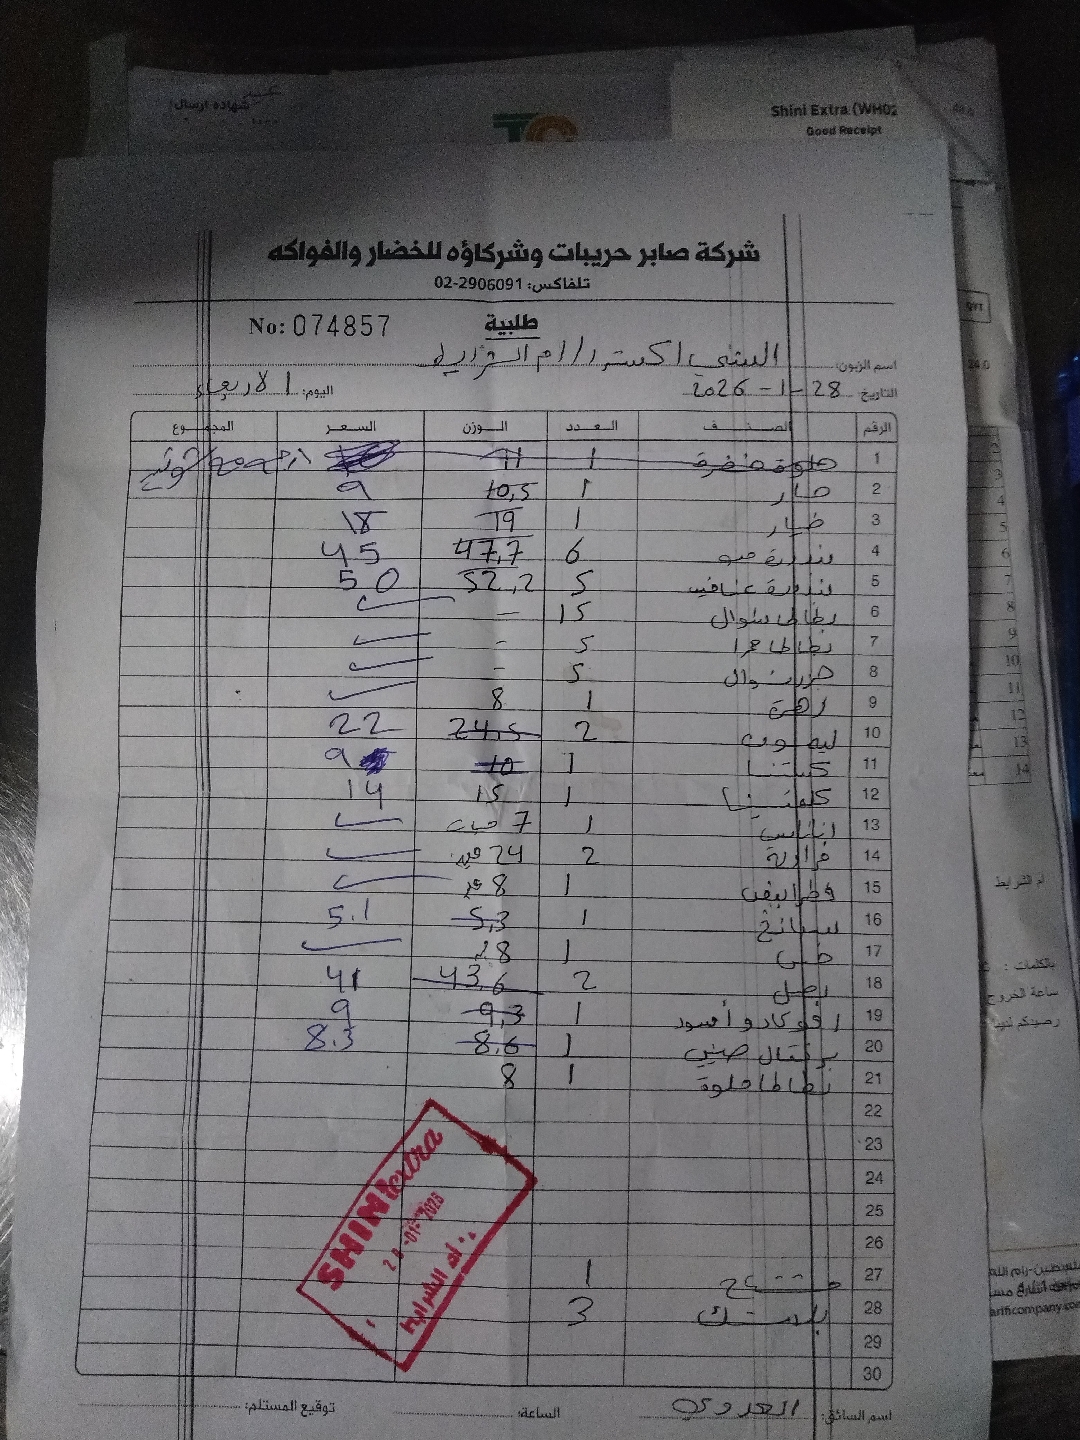 شهادة ارسال
Shini Extra (WH02
Good Receipt
شركة صابر حريبات وشركاؤه للخضار والفواكه
تلفاكس: 02-2906091
No: 074857
طلبية
اسم الزبون: الشني اكسترا / ام الشرايط
التاريخ 28-1-2026 اليوم: الاربعاء
الرقم الصنف العدد الوزن السعر المجموع
1 1 11
2 خيار 1 10,5 9
3 خيار 1 19 18
4 بندورة 6 47,7 45
5 بندورة عناقيد 5 52,2 50
6 بطاطا شوال 15 -
7 بطاطا حمرا 5 -
8 جزر شوال 5 -
9 زهرة 1 8
10 ليمون 2 24,5 22
11 كستنا 1 10 9
12 كلمنتينا 1 15 14
13 اناناس 1 7 حبات
14 فراولة 2 24
15 1 8
16 سبانخ 1 5,3 5.1
17 خس 1 28
18 بصل 2 43,6 41
19 افوكادو أسود 1 9,3 9
20 برتقال صيني 1 8,6 8.3
21 بطاطا حلوة 1 8
22
23
24
25
26
27 1
28 بلاستك 3
29
30
SHINI extra
ام الشرايط
اسم السائق: الساعة: توقيع المستلم:
ام الشرايط
بالكلمات :
ساعة الخروج